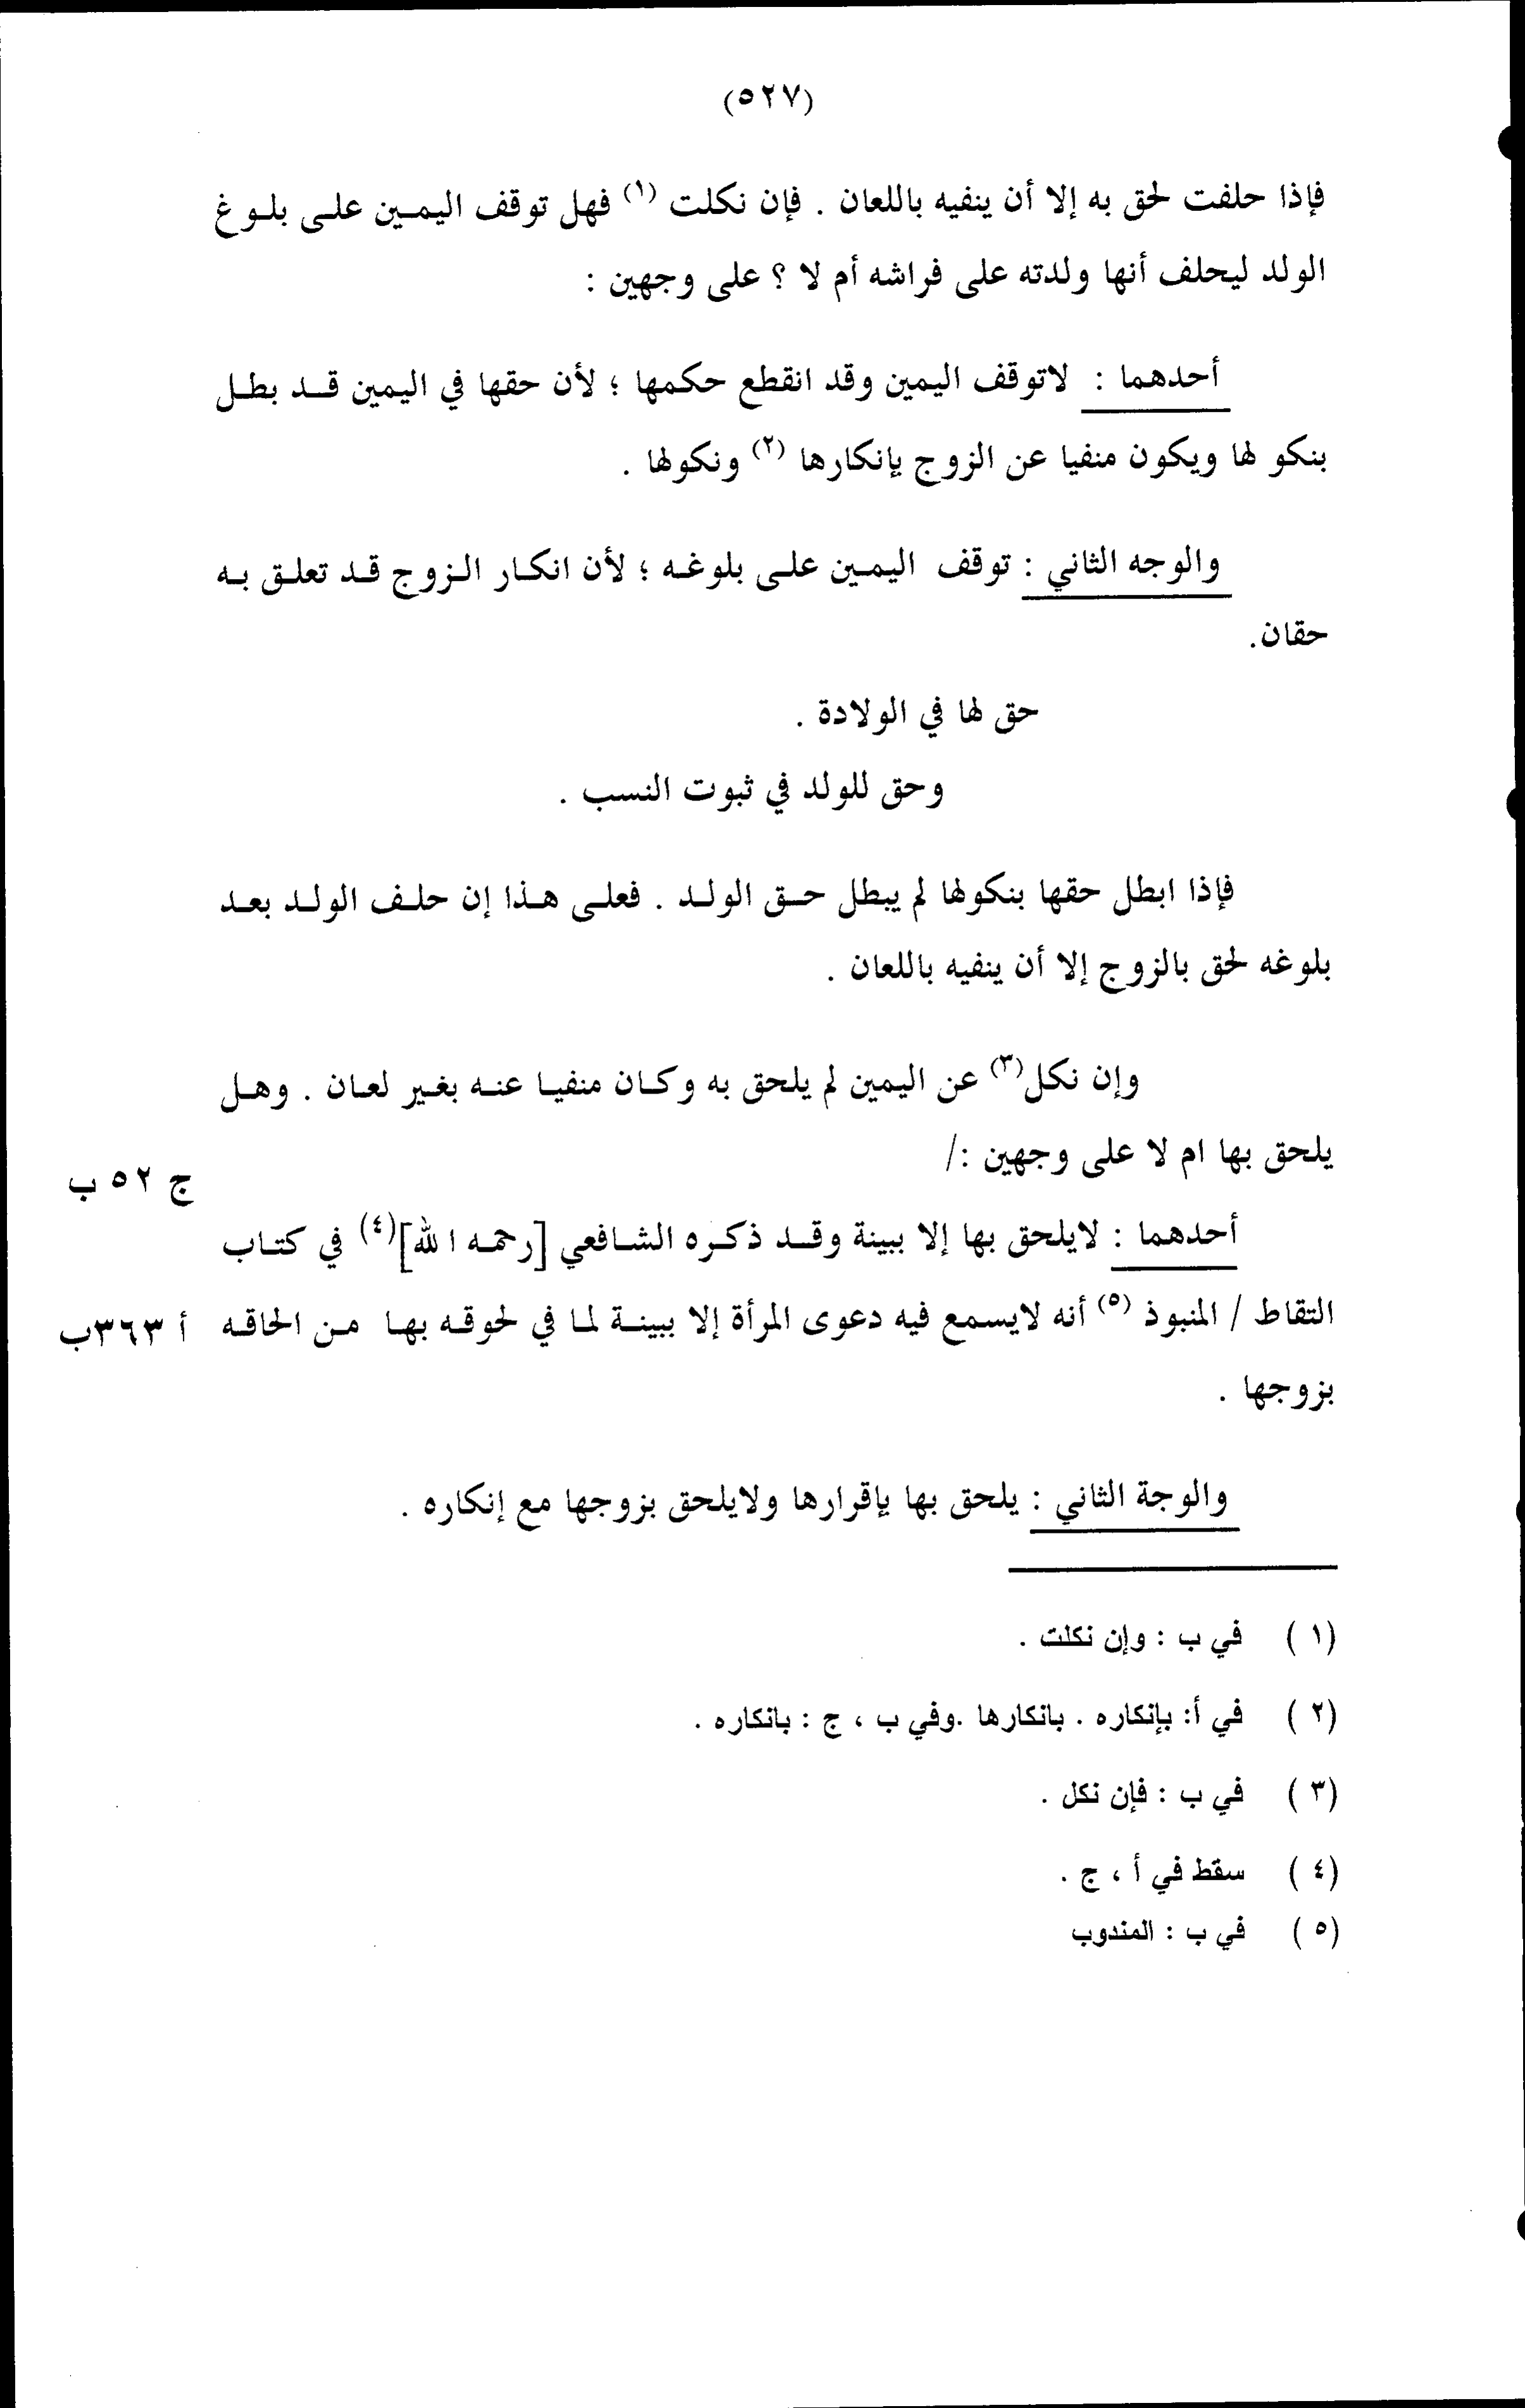 (٥٢٧)
فإذا حلفت لحق به إلا أن ينفيه باللعان . فإن نكلت (١) فهل توقف اليمين على بلوغ
الولد ليحلف أنها ولدته على فراشه أم لا ؟ على وجهين :
أحدهما : لاتوقف اليمين وقد انقطع حكمها ؛ لأن حقها في اليمين قد بطل
بنكو لها ويكون منفيا عن الزوج بإنكارها (٢) ونكولها .
والوجه الثاني : توقف اليمين على بلوغه ؛ لأن انكار الزوج قد تعلق به
حقان.
حق لها في الولادة .
وحق للولد في ثبوت النسب .
فإذا ابطل حقها بنكولها لم يبطل حق الولد . فعلى هذا إن حلف الولد بعد
بلوغه لحق بالزوج إلا أن ينفيه باللعان .
وإن نكل(٣) عن اليمين لم يلحق به وكان منفيا عنه بغير لعان . وهل
يلحق بها ام لا على وجهين :/
ج ٥٢ ب
أحدهما : لايلحق بها إلا ببينة وقد ذكره الشافعي [رحمه الله](٤) في كتاب
التقاط / المنبوذ (٥) أنه لايسمع فيه دعوى المرأة إلا ببينة لما في لحوقه بها من الحاقه أ ٣٦٣ب
بزوجها .
والوجة الثاني : يلحق بها بإقرارها ولايلحق بزوجها مع إنكاره .
(١) في ب : وإن نكلت .
(٢) في أ: بإنكاره . بانكارها .وفي ب ، ج : بانكاره .
(٣) في ب : فإن نكل .
(٤) سقط في أ ، ج .
(٥) في ب : المندوب